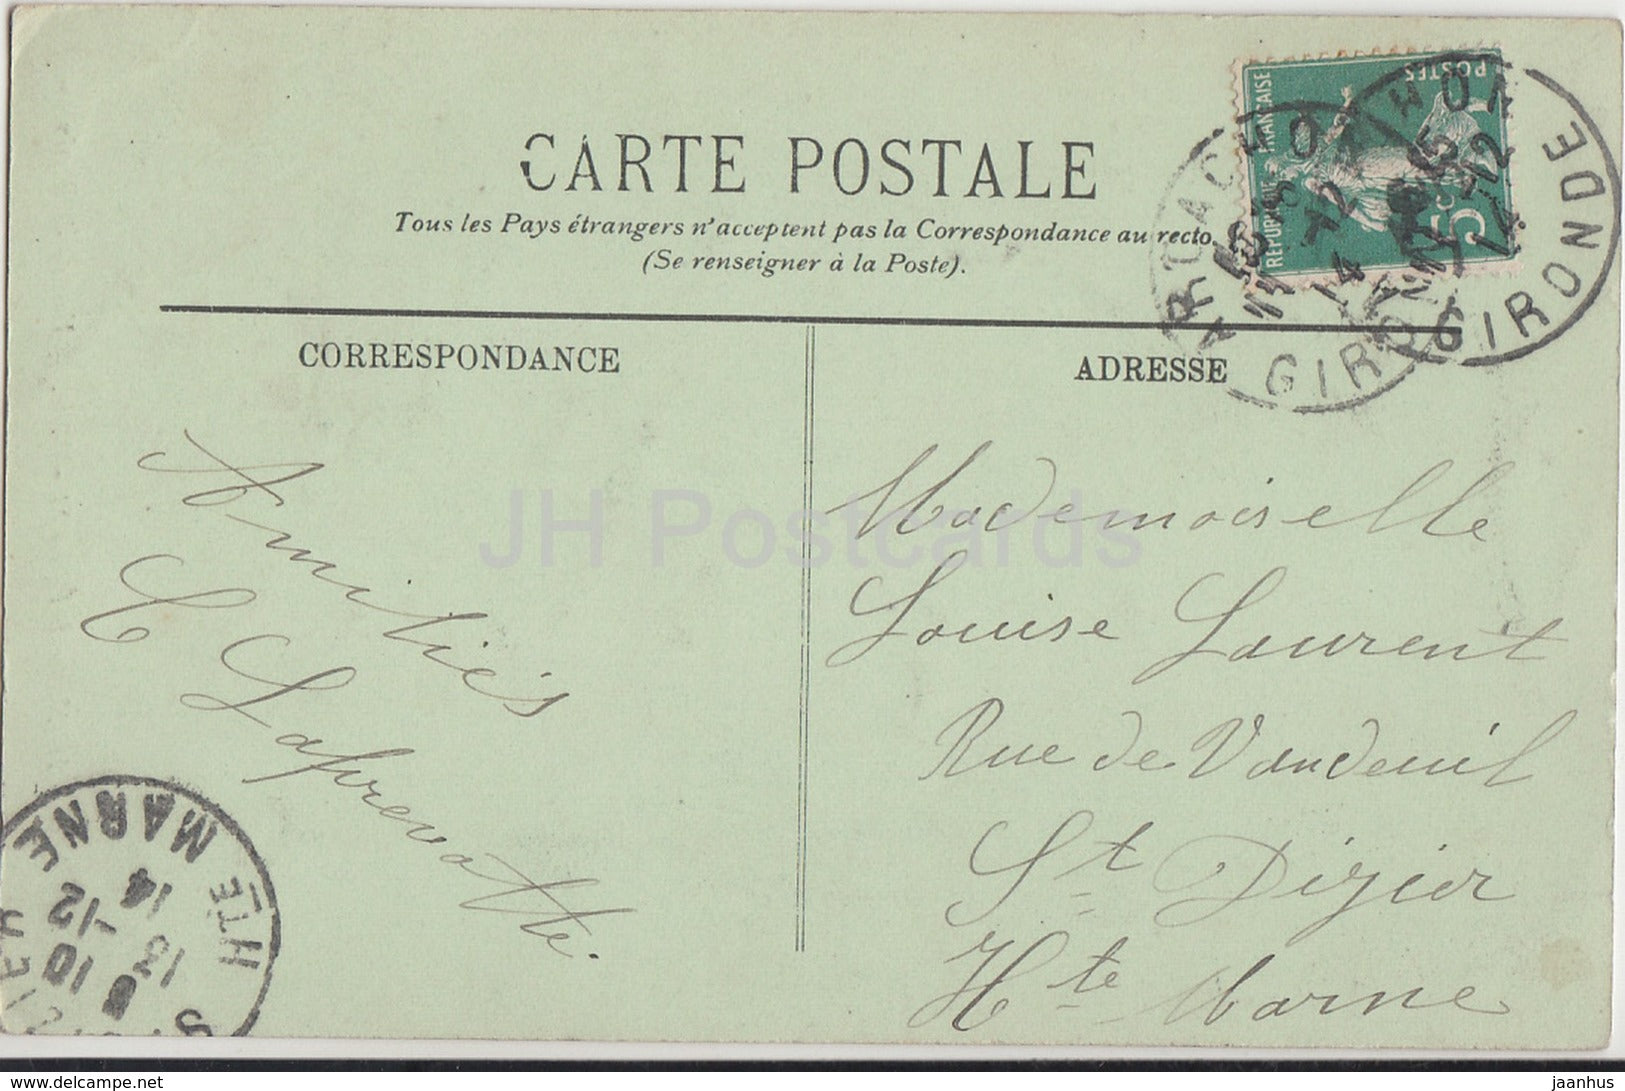 CARTE POSTALE
Tous les Pays étrangers n'acceptent pas la Correspondance au recto.
(Se renseigner à la Poste).
RÉPUBLIQUE FRANÇAISE
POSTES
5c
GIRONDE
GIRONDE
CORRESPONDANCE
Amitiés
C Laprevotte.
ADRESSE
Mademoiselle
Louise Laurent
Rue de Vandeuil
St Dizier
Hte Marne
HTE MARNE
10
13
-12
14
JH Postcards
www.delcampe.net
jaanhus